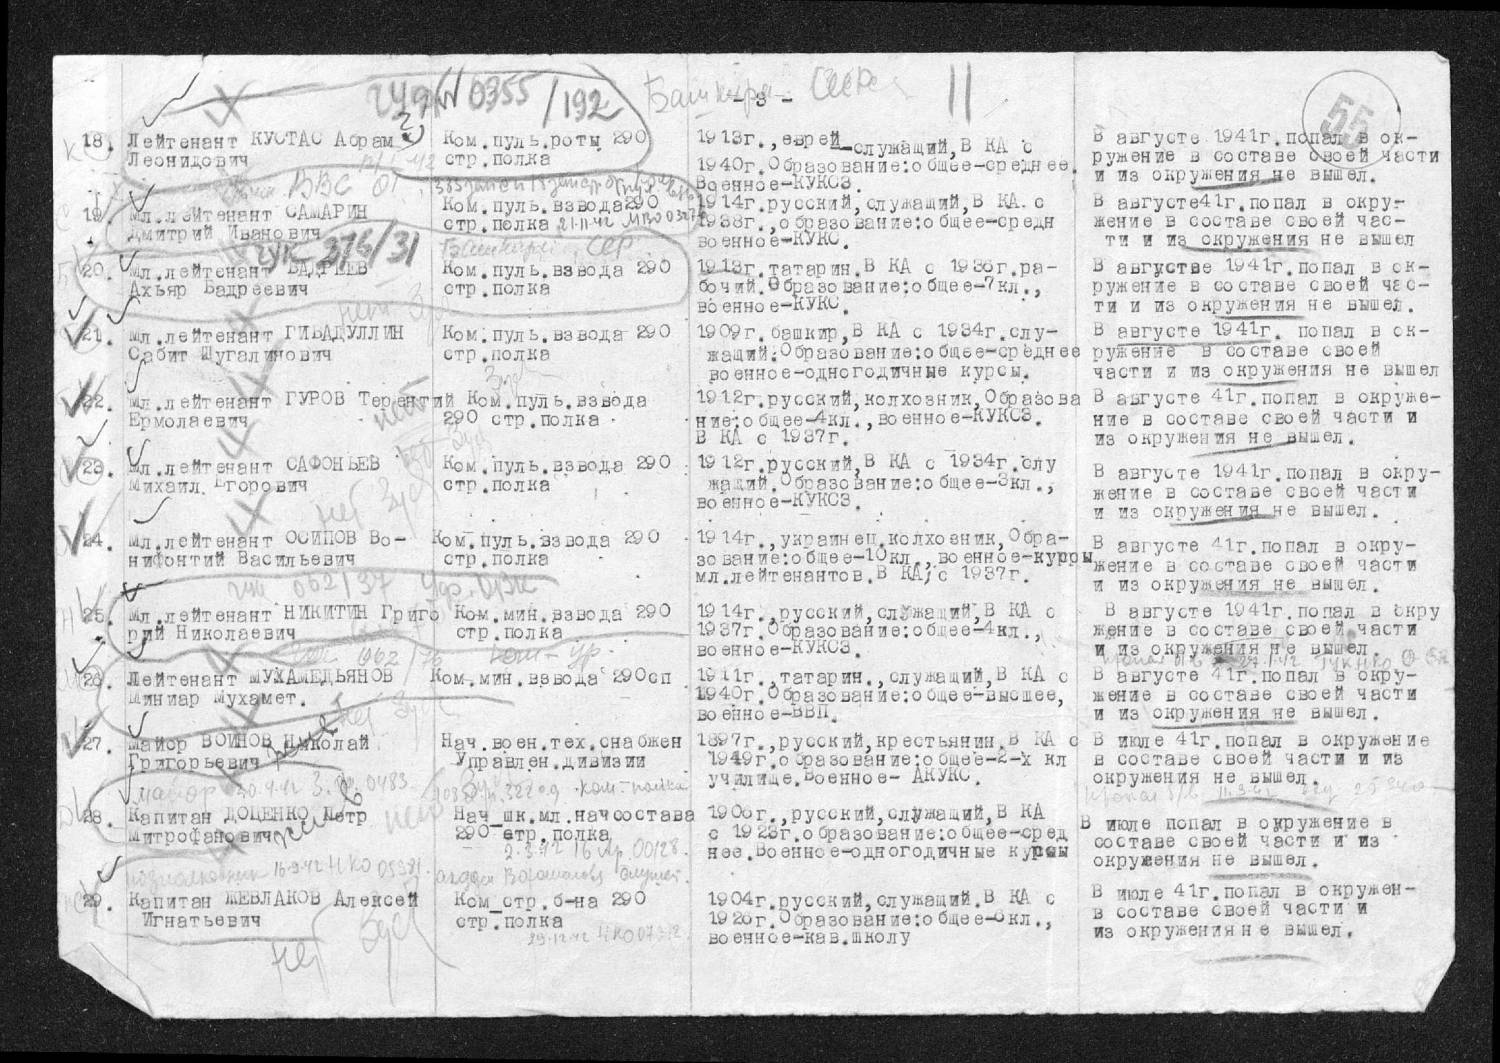 ГУК 0355/192
Башкирск
- 3 -
11
55
18. Лейтенант КУСТАС Абрам Леонидович
Ком.пуль.роты 290 стр.полка
1913г.,еврей служащий,В КА с
1940г.Образование:общее-среднее,
Военное-КУКСЗ.
В августе 1941г.попал в ок-
ружение в составе своей части
и из окружения не вышел.
ВВС 01
19. Мл.лейтенант САМАРИН
Дмитрий Иванович
Ком.пуль.взвода290
стр.полка 21-11-42 МВО
1914г.русский,служащий,В КА с
1938г.,образование:общее-средн
военное-КУКС.
В августе41г.попал в окру-
жение в составе своей час-
ти и из окружения не вышел
ГУК 376/31
20. Мл.лейтенант БАДРЕЕВ
Ахьяр Бадреевич
Ком.пуль.взвода 290
стр.полка
1913г.татарин.В КА с 1936г.ра-
бочий.Образование:общее-7кл.,
военное-КУКС.
В августве 1941г.попал в ок-
ружение в составе своей час-
ти и из окружения не вышел.
21. Мл.лейтенант ГИБАДУЛЛИН
Сабит Шугалинович
Ком.пуль.взвода 290
стр.полка
1909г.башкир,В КА с 1934г.слу-
жащий:Образование:общее-среднее
военное-одногодичные курсы.
В августе 1941г. попал в ок-
ружение в составе своей
части и из окружения не вышел
22. Мл.лейтенант ГУРОВ Терентий
Ермолаевич
Ком.пуль.взвода
290 стр.полка
1912г.русский,колхозник,Образова
ние:общее-4кл.,военное-КУКСЗ.
В КА с 1937г.
В августе 41г.попал в окруже-
ние в составе своей части и
из окружения не вышел.
23. Мл.лейтенант САФОНЬЕВ
Михаил Егорович
Ком.пуль.взвода 290
стр.полка
1912г.русский,В КА с 1934г.слу
жащий.Образование:общее-3кл.,
военное-КУКСЗ.
В августе 1941г.попал в окру-
жение в составе своей части
и из окружения не вышел.
нет
24. Мл.лейтенант ОСИПОВ Во-
нифонтий Васильевич
Ком.пуль.взвода 290
стр.полка
1914г.,украинец,колхозник,Обра-
зование:общее-10кл.,военное-курры
мл.лейтенантов.В КА с 1937г.
В августе 41г.попал в окру-
жение в составе своей части
и из окружения не вышел.
гук 062/37
25. Мл.лейтенант НИКИТИН Григо
рий Николаевич
Ком.мин.взвода 290
стр.полка
1914г.,русский,служащий,В КА с
1937г.Образование:общее-4кл.,
военное-КУКСЗ.
В августе 1941г.попал в окру
жение в составе своей части
и из окружения не вышел.
062/76
26. Лейтенант МУХАМЕДЬЯНОВ
Миниар Мухамет.
Ком.мин.взвода 290сп
1911г.,татарин.,служащий,В КА с
1940г.Образование:общее-высшее,
военное-ВВП.
В августе 41г.попал в окру-
жение в составе своей части
и из окружения не вышел.
нет
27. Майор ВОИНОВ Николай
Григорьевич
Нач.воен.тех.снабжен
Управлен.дивизии
1897г.,русский,крестьянин.В КА с
1949г.образование:общее-2-х кл
училище.Военное- АКУКС.
В июле 41г.попал в окружение
в составе своей части и из
окружения не вышел.
майор 30.4.42 0483
28. Капитан ДОЦЕНКО Петр
Митрофанович
Нач_шк.мл.начсостава
290 стр,полка
1906г.,русский,служащий,В КА
с 1928г.образование:общее-сред
нее.Военное-одногодичные курсы
В июле попал в окружение в
составе своей части и из
окружения не вышел.
16-9-42 НКО
29. Капитан ЖЕВЛАКОВ Алексей
Игнатьевич
Ком_стр.б-на 290
стр.полка
1904г.русский,служащий.В КА с
1926г.Образование:общее-6кл.,
военное-кав.школу
В июле 41г.попал в окружен-
в составе своей части и
из окружения не вышел.
нет